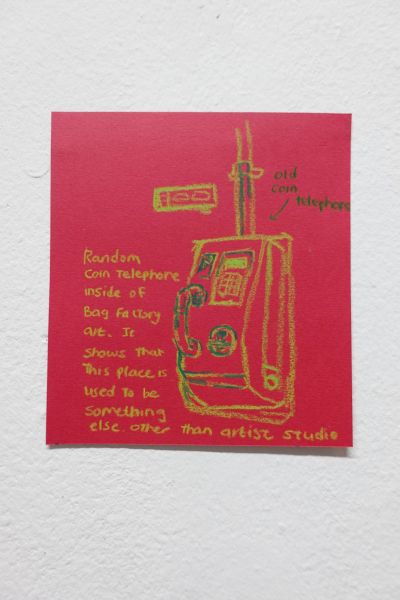 old
coin
telephone
Random
Coin Telephone
inside of
Bag Factory
art. It
shows that
This place is
used to be
something
else. other than artist studio